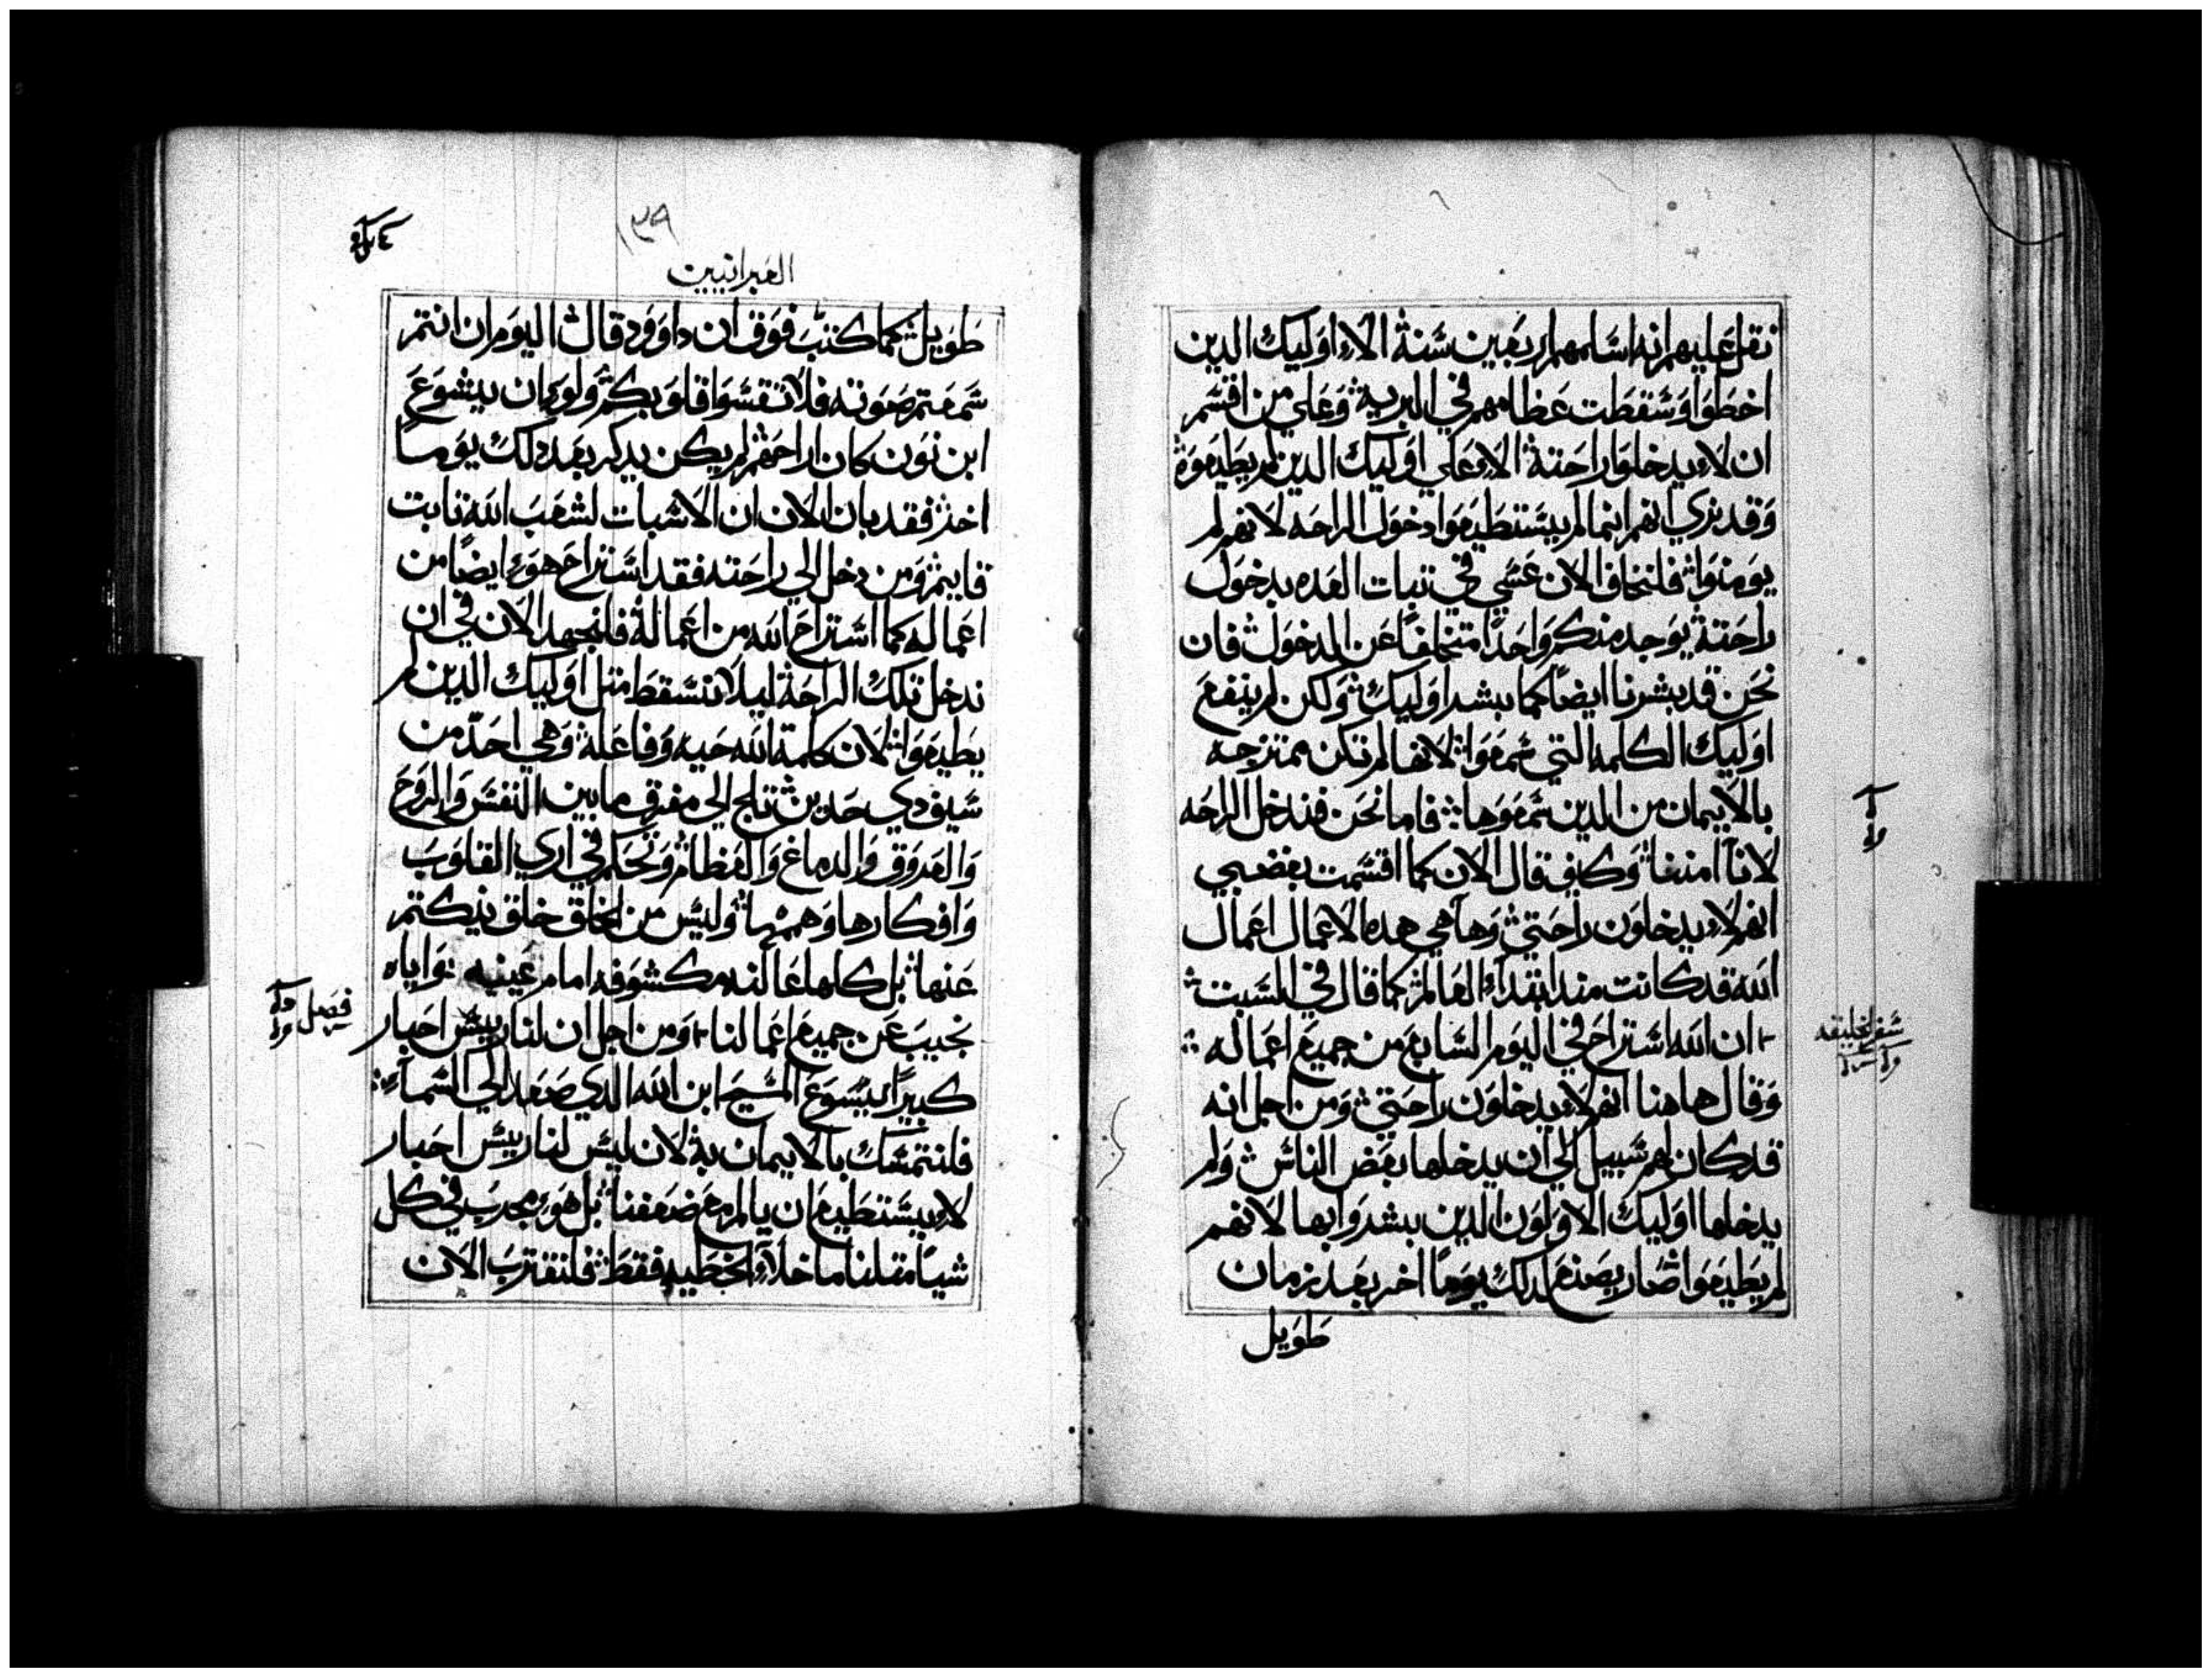 ثقل عليهم انه اسامهم اربعين سنة الا اوليك الدين
اخطوا وسقطت عظامهم في البرية وعلي من اقسم
ان لا يدخلوا راحته الا علي اوليك الدين لم يطيعوه
وقد نري انهم انما لم يستطيعوا دخول الراحه لانهم لم
يومنوا فلنخاف الان عسي في تبات العده بدخول
راحته يوجد منكم واحدا متخلفا عن الدخول فان
نحن قد بشرنا ايضا كما بشر اوليك ولكن لم ينفع
اوليك الكلمه التي سمعوا لانها لم تكن ممتزجه
بالايمان من الدين سمعوها فاما نحن فندخل الراحه
لانا امننا وكيف قال الان كما اقسمت بغضبي
انهم لا يدخلون راحتي وها هي هده الاعمال اعمال
الله قد كانت مند ابتداء العالم كما قال في السبت
ان الله استراح في اليوم السابع من جميع اعماله
وقال هاهنا انهم لا يدخلون راحتي ومن اجل انه
قد كان لهم سبيل الي ان يدخلها بعض الناس ولم
يدخلها اوليك الاولون الدين بشروا بها لانهم
لم يطيعوا صار يصنع لدلك يوما اخر بعد زمان
طويل
سفر الخليقه
١٣٩
العبرانيين
طويل كما كتب فوق ان داوود قال اليوم ان انتم
سمعتم صوته فلا تقسوا قلوبكم ولو كان يشوع
ابن نون كان اراحهم لم يكن يدكر بعد دلك يوما
اخر فقد بان الان ان الاسبات لشعب الله تابت
قايم ومن دخل الي راحته فقد استراح هو ايضا من
اعماله كما استراح الله من اعماله فلنجهد الان في ان
ندخل تلك الراحة ليلا نسقط متل اوليك الدين لم
يطيعوا لان كلمة الله حيه وفاعله وهي احد من
سيف دي حدين تلج الي مفرق ما بين النفس والروح
والعروق والدماغ والعظام وتحكم في اري القلوب
وافكارها وهممها وليس من الخلق خلق يكتم
عنها بل كلها عالنه مكشوفه امام عينيه واياه
نجيب عن جميع اعمالنا ومن اجل ان لنا رييس احبار
فصل
كبيرا يسوع المسيح ابن الله الدي صعد الي السماء
فلنتمسك بالايمان به لان ليس لنا رييس احبار
لا يستطيع ان يالم مع ضعفنا بل هو مجرب في كل
شيا متلنا ما خلا الخطيه فقط فلنقترب الان